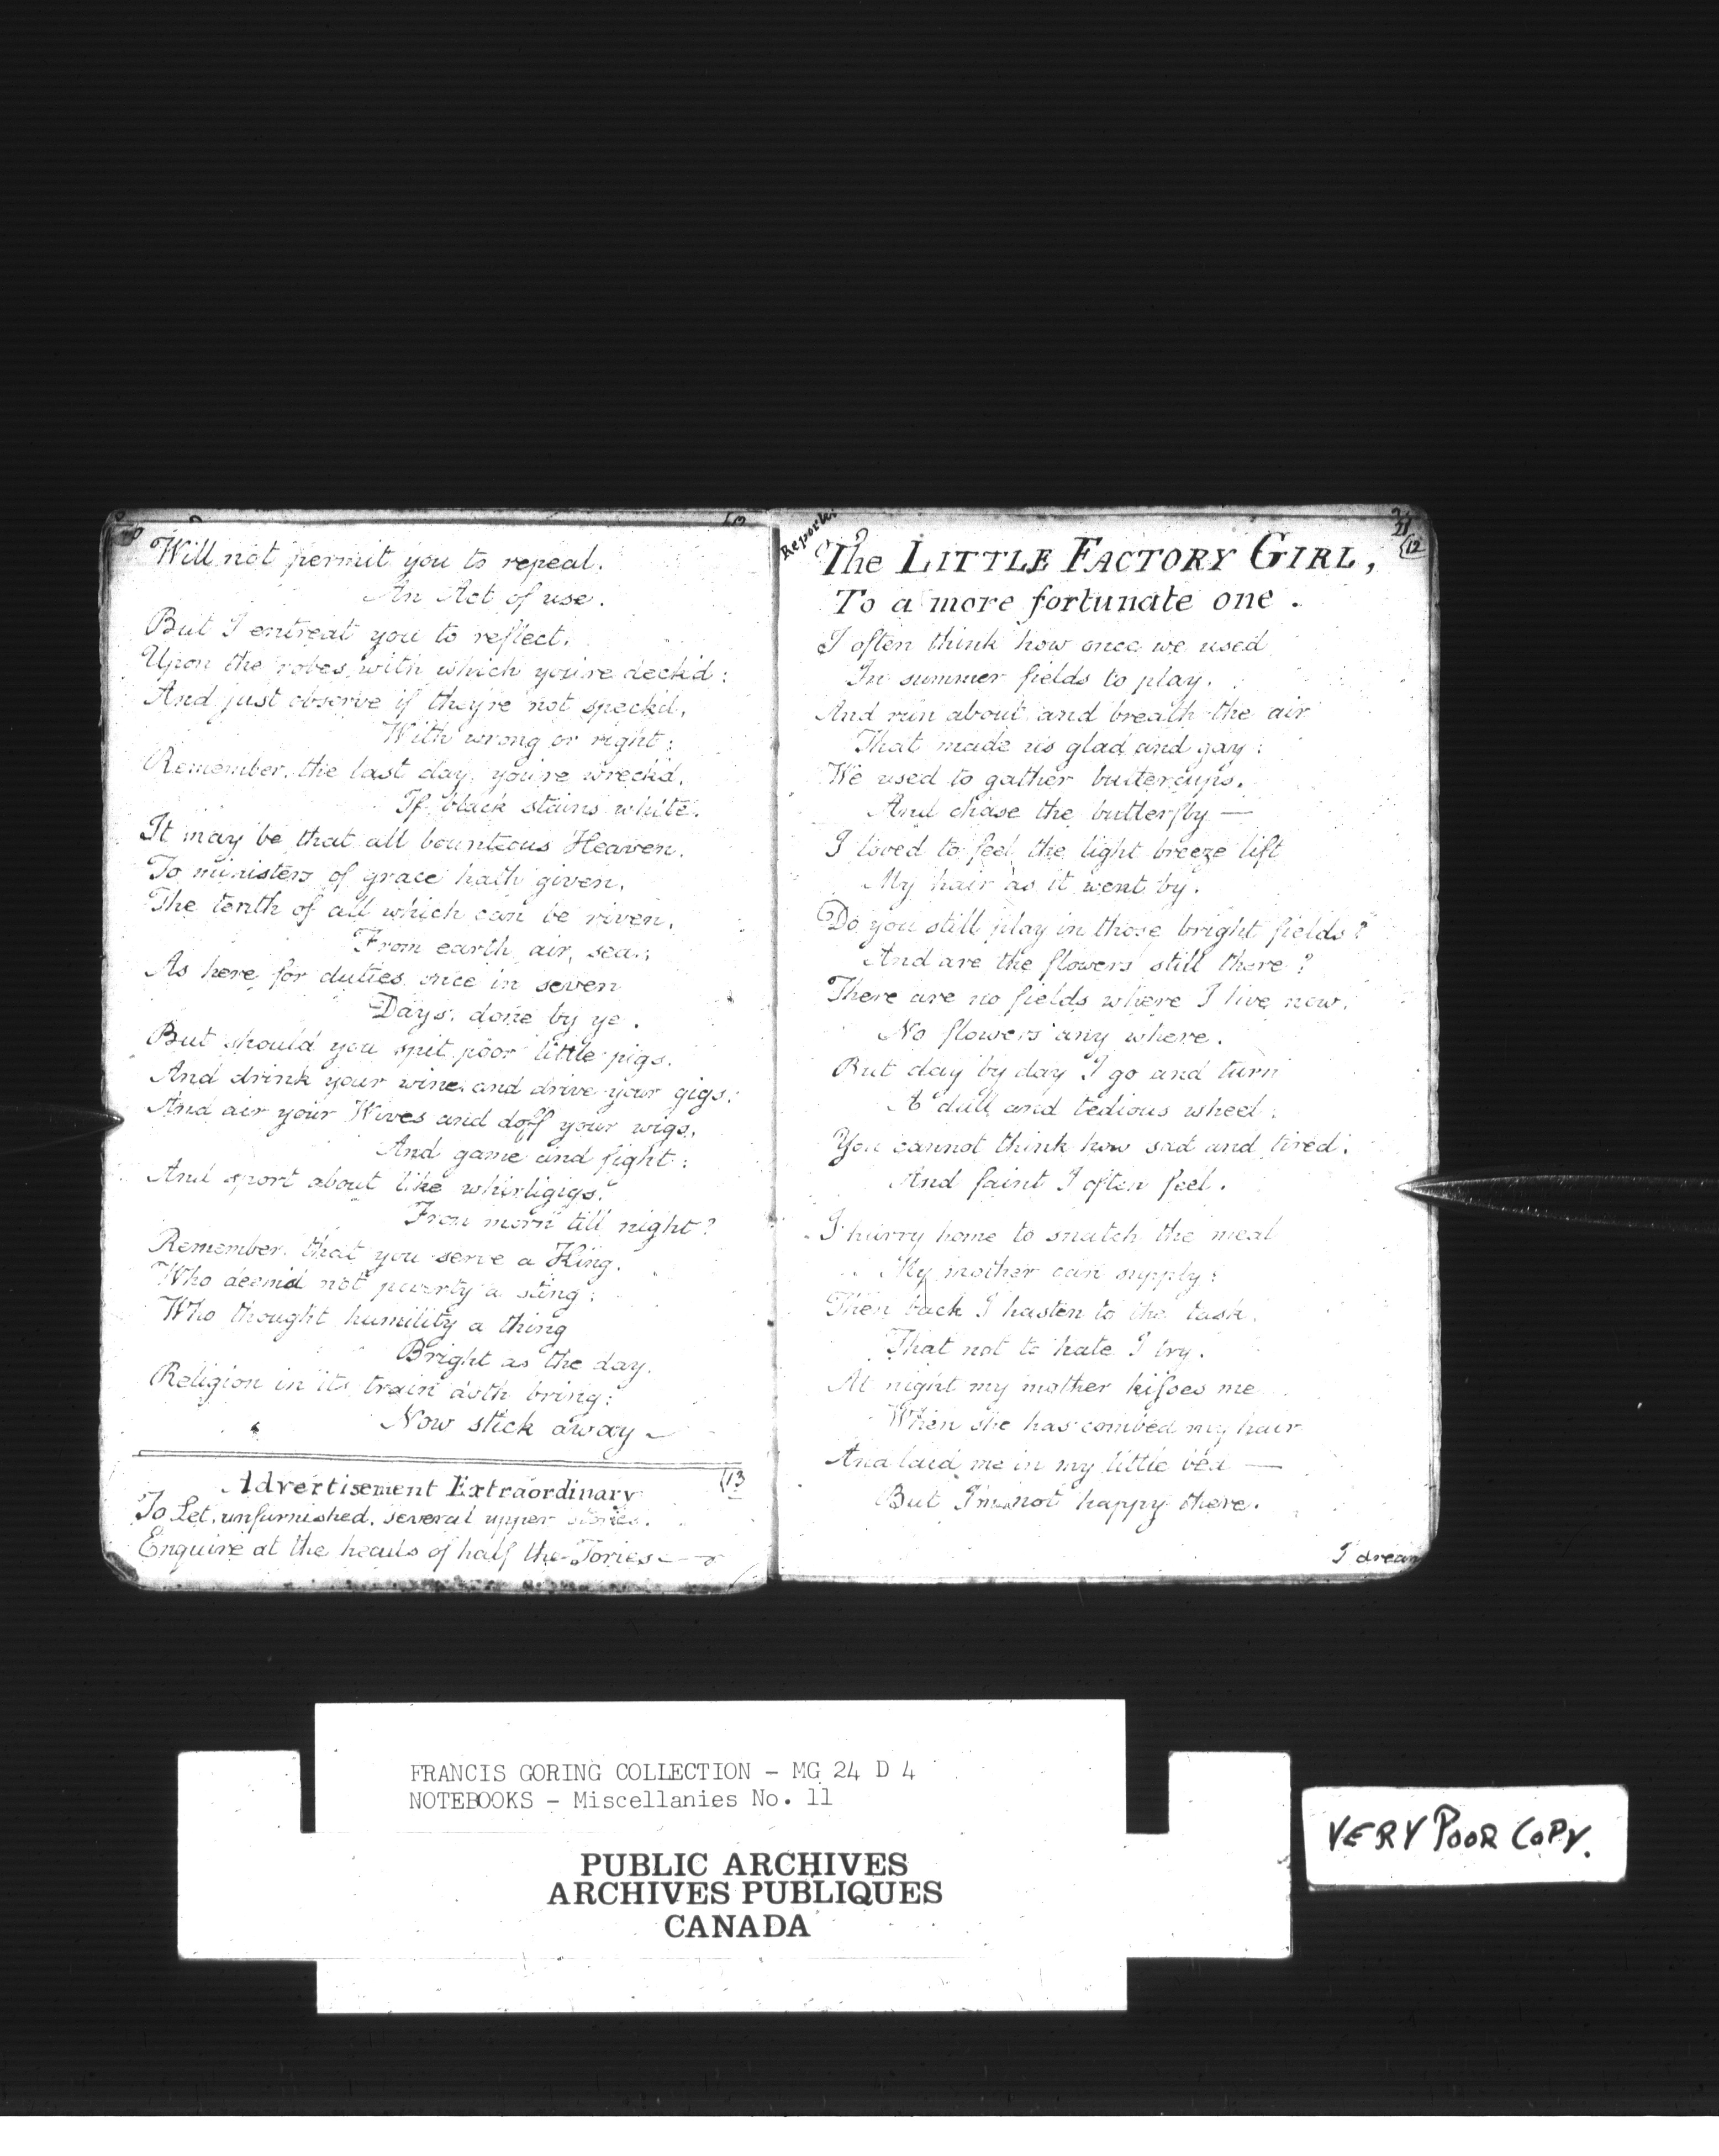 Will not permit you to repeal.
An Act of use.
But I entreat you to reflect.
Upon the robes with which you're deck'd:
And just observe if they're not speck'd,
With wrong or right:
Remember, the last day, you're wreck'd,
If black stains white.
It may be that all bounteous Heaven,
To ministers of grace hath given,
The tenth of all which can be riven,
From earth, air, sea:
As here for duties once in seven
Days, done by ye.
But should you spit poor little pigs,
And drink your wine, and drive your gigs,
And air your Wives and doff your wigs,
And game and fight:
And sport about like whirligigs,
From morn till night?
Remember that you serve a King.
Who deem'd not poverty a sting:
Who thought humility a thing
Bright as the day.
Religion in its train doth bring:
Now stick away
Advertisement Extraordinary (13
To Let, unfurnished, several upper stories.
Enquire at the heads of half the Tories
Report:
21
(12
The LITTLE FACTORY GIRL,
To a more fortunate one.
I often think how once we used
In summer fields to play.
And run about and breath the air
That made us glad and gay:
We used to gather buttercups,
And chase the butterfly —
I loved to feel the light breeze lift
My hair as it went by.
Do you still play in those bright fields?
And are the flowers still there?
There are no fields where I live now,
No flowers any where.
But day by day I go and turn
A dull and tedious wheel;
You cannot think how sad and tired,
And faint I often feel.
I hurry home to snatch the meal
My mother can supply:
Then back I hasten to the task,
That not to hate I try.
At night my mother kisses me
When she has combed my hair
And laid me in my little bed —
But I'm not happy there.
I dream
FRANCIS GORING COLLECTION - MG 24 D 4
NOTEBOOKS - Miscellanies No. 11
PUBLIC ARCHIVES
ARCHIVES PUBLIQUES
CANADA
VERY POOR COPY.